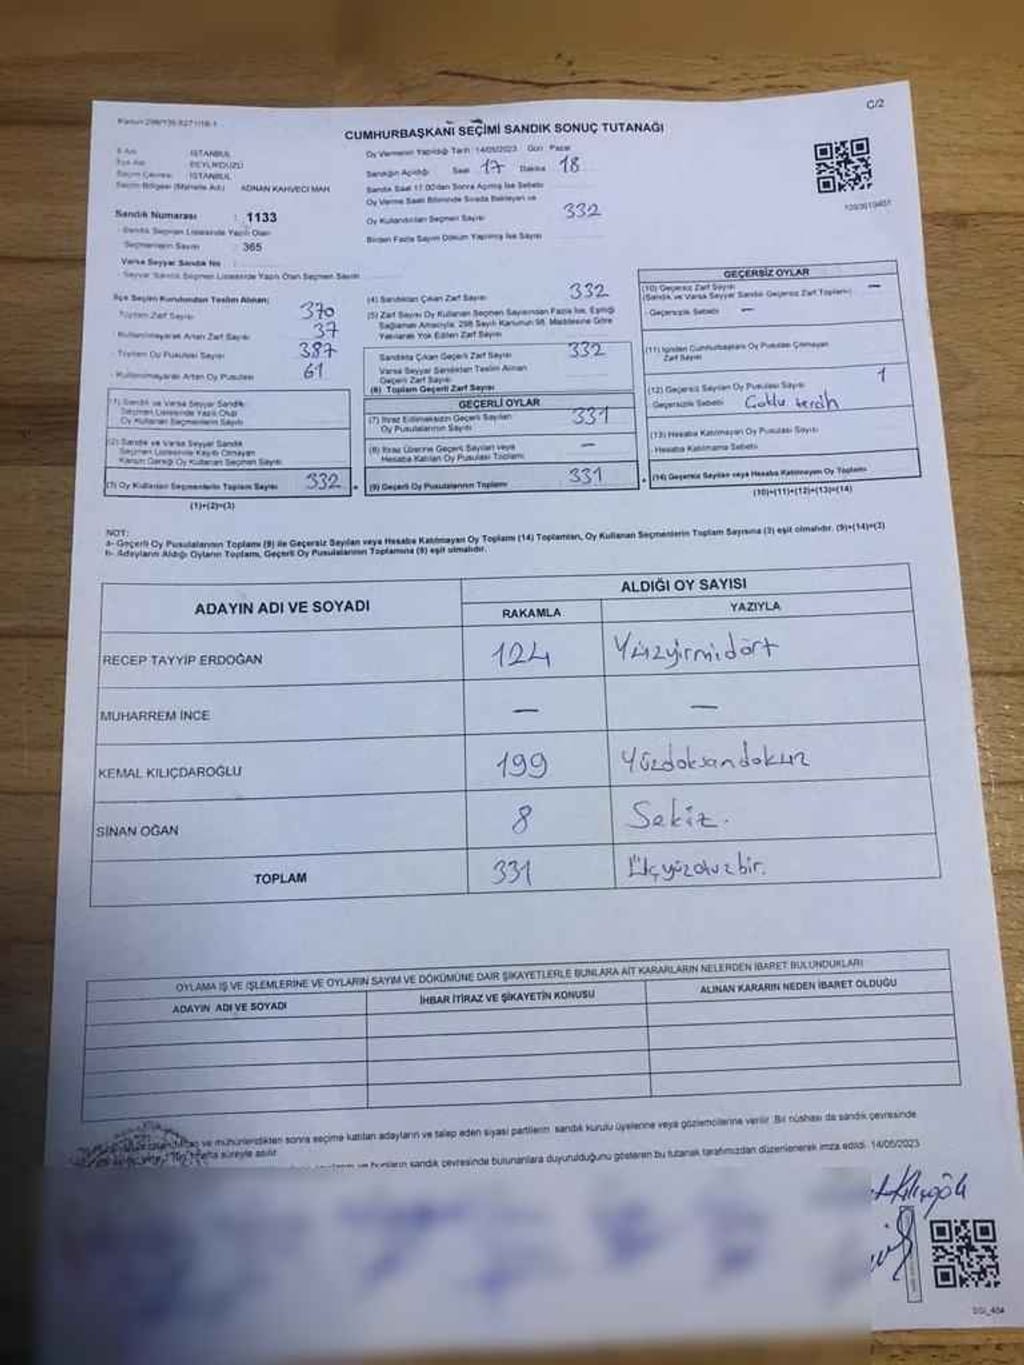 C/2
CUMHURBAŞKANI SEÇİMİ SANDIK SONUÇ TUTANAĞI
İli Adı : İSTANBUL
İlçe Adı : BEYLİKDÜZÜ
Seçim Çevresi : İSTANBUL
Seçim Bölgesi (Mahalle Adı) : ADNAN KAHVECİ MAH
Sandık Numarası : 1133
Sandık Seçmen Listesinde Yazılı Olan
Seçmenlerin Sayısı : 365
Varsa Seyyar Sandık No :
Seyyar Sandık Seçmen Listesinde Yazılı Olan Seçmen Sayısı
Oy Vermenin Yapıldığı Tarih : 14/05/2023 Gün : Pazar
Sandığın Açıldığı : Saat : 17 Dakika : 18
Sandık Saat 17.00'dan Sonra Açılmış İse Sebebi :
Oy Verme Saati Bitiminde Sırada Bekleyen ve
Oy Kullandırılan Seçmen Sayısı : 332
Birden Fazla Sayım Döküm Yapılmış İse Sayısı
İlçe Seçim Kurulundan Teslim Alınan;
Toplam Zarf Sayısı : 370
Kullanılmayarak Artan Zarf Sayısı : 37
Toplam Oy Pusulası Sayısı : 387
Kullanılmayarak Artan Oy Pusulası : 61
(1) Sandık ve Varsa Seyyar Sandık
Seçmen Listesinde Yazılı Olup
Oy Kullanan Seçmenlerin Sayısı
(2) Sandık ve Varsa Seyyar Sandık
Seçmen Listesinde Kayıtlı Olmayan
Kanun Gereği Oy Kullanan Seçmen Sayısı
(3) Oy Kullanan Seçmenlerin Toplam Sayısı 332
(1)+(2)=(3)
(4) Sandıktan Çıkan Zarf Sayısı : 332
(5) Zarf Sayısı Oy Kullanan Seçmen Sayısından Fazla İse, Eşitliği
Sağlamak Amacıyla, 298 Sayılı Kanunun 98. Maddesine Göre
Yakılarak Yok Edilen Zarf Sayısı
Sandıkta Çıkan Geçerli Zarf Sayısı 332
Varsa Seyyar Sandıktan Teslim Alınan
Geçerli Zarf Sayısı
(6) Toplam Geçerli Zarf Sayısı
GEÇERLİ OYLAR
(7) İtiraz Edilmeksizin Geçerli Sayılan
Oy Pusulalarının Sayısı 331
(8) İtiraz Üzerine Geçerli Sayılan veya
Hesaba Katılan Oy Pusulası Toplamı —
(9) Geçerli Oy Pusulalarının Toplamı 331
GEÇERSİZ OYLAR
(10) Geçersiz Zarf Sayısı
(Sandık ve Varsa Seyyar Sandık Geçersiz Zarf Toplamı) —
Geçersizlik Sebebi : —
(11) İçinden Cumhurbaşkanı Oy Pusulası Çıkmayan
Zarf Sayısı
(12) Geçersiz Sayılan Oy Pusulası Sayısı 1
Geçersizlik Sebebi : Çoklu tercih
(13) Hesaba Katılmayan Oy Pusulası Sayısı
Hesaba Katılmama Sebebi :
(14) Geçersiz Sayılan veya Hesaba Katılmayan Oy Toplamı
(10)+(11)+(12)+(13)=(14)
NOT:
a- Geçerli Oy Pusulalarının Toplamı (9) ile Geçersiz Sayılan veya Hesaba Katılmayan Oy Toplamı (14) Toplamları, Oy Kullanan Seçmenlerin Toplam Sayısına (3) eşit olmalıdır. (9)+(14)=(3)
b- Adayların Aldığı Oyların Toplamı, Geçerli Oy Pusulalarının Toplamına (9) eşit olmalıdır.
ADAYIN ADI VE SOYADI
ALDIĞI OY SAYISI
RAKAMLA YAZIYLA
RECEP TAYYİP ERDOĞAN 124 Yüzyirmidört
MUHARREM İNCE — —
KEMAL KILIÇDAROĞLU 199 Yüzdoksandokuz
SİNAN OĞAN 8 Sekiz.
TOPLAM 331 Üçyüzotuzbir.
OYLAMA İŞ VE İŞLEMLERİNE VE OYLARIN SAYIM VE DÖKÜMÜNE DAİR ŞİKAYETLERLE BUNLARA AİT KARARLARIN NELERDEN İBARET BULUNDUKLARI
ADAYIN ADI VE SOYADI İHBAR İTİRAZ VE ŞİKAYETİN KONUSU ALINAN KARARIN NEDEN İBARET OLDUĞU
ve mühürlendikten sonra seçime katılan adayların ve talep eden siyasi partilerin sandık kurulu üyelerine veya gözlemcilerine verilir. Bir nüshası da sandık çevresinde
hafta süreyle asılır.
ve bunların sandık çevresinde bulunanlara duyurulduğunu gösteren bu tutanak tarafımızdan düzenlenerek imza edildi. 14/05/2023